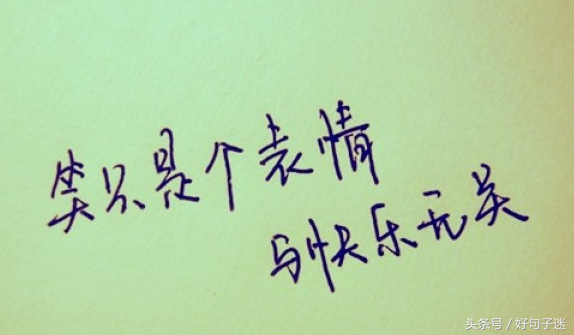 笑只是个表情
与快乐无关
头条号/好句子迷